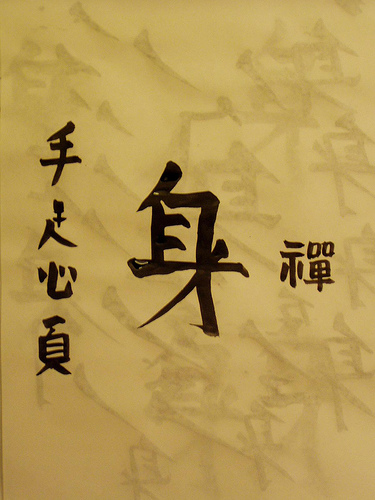 禪
身
手足心頁